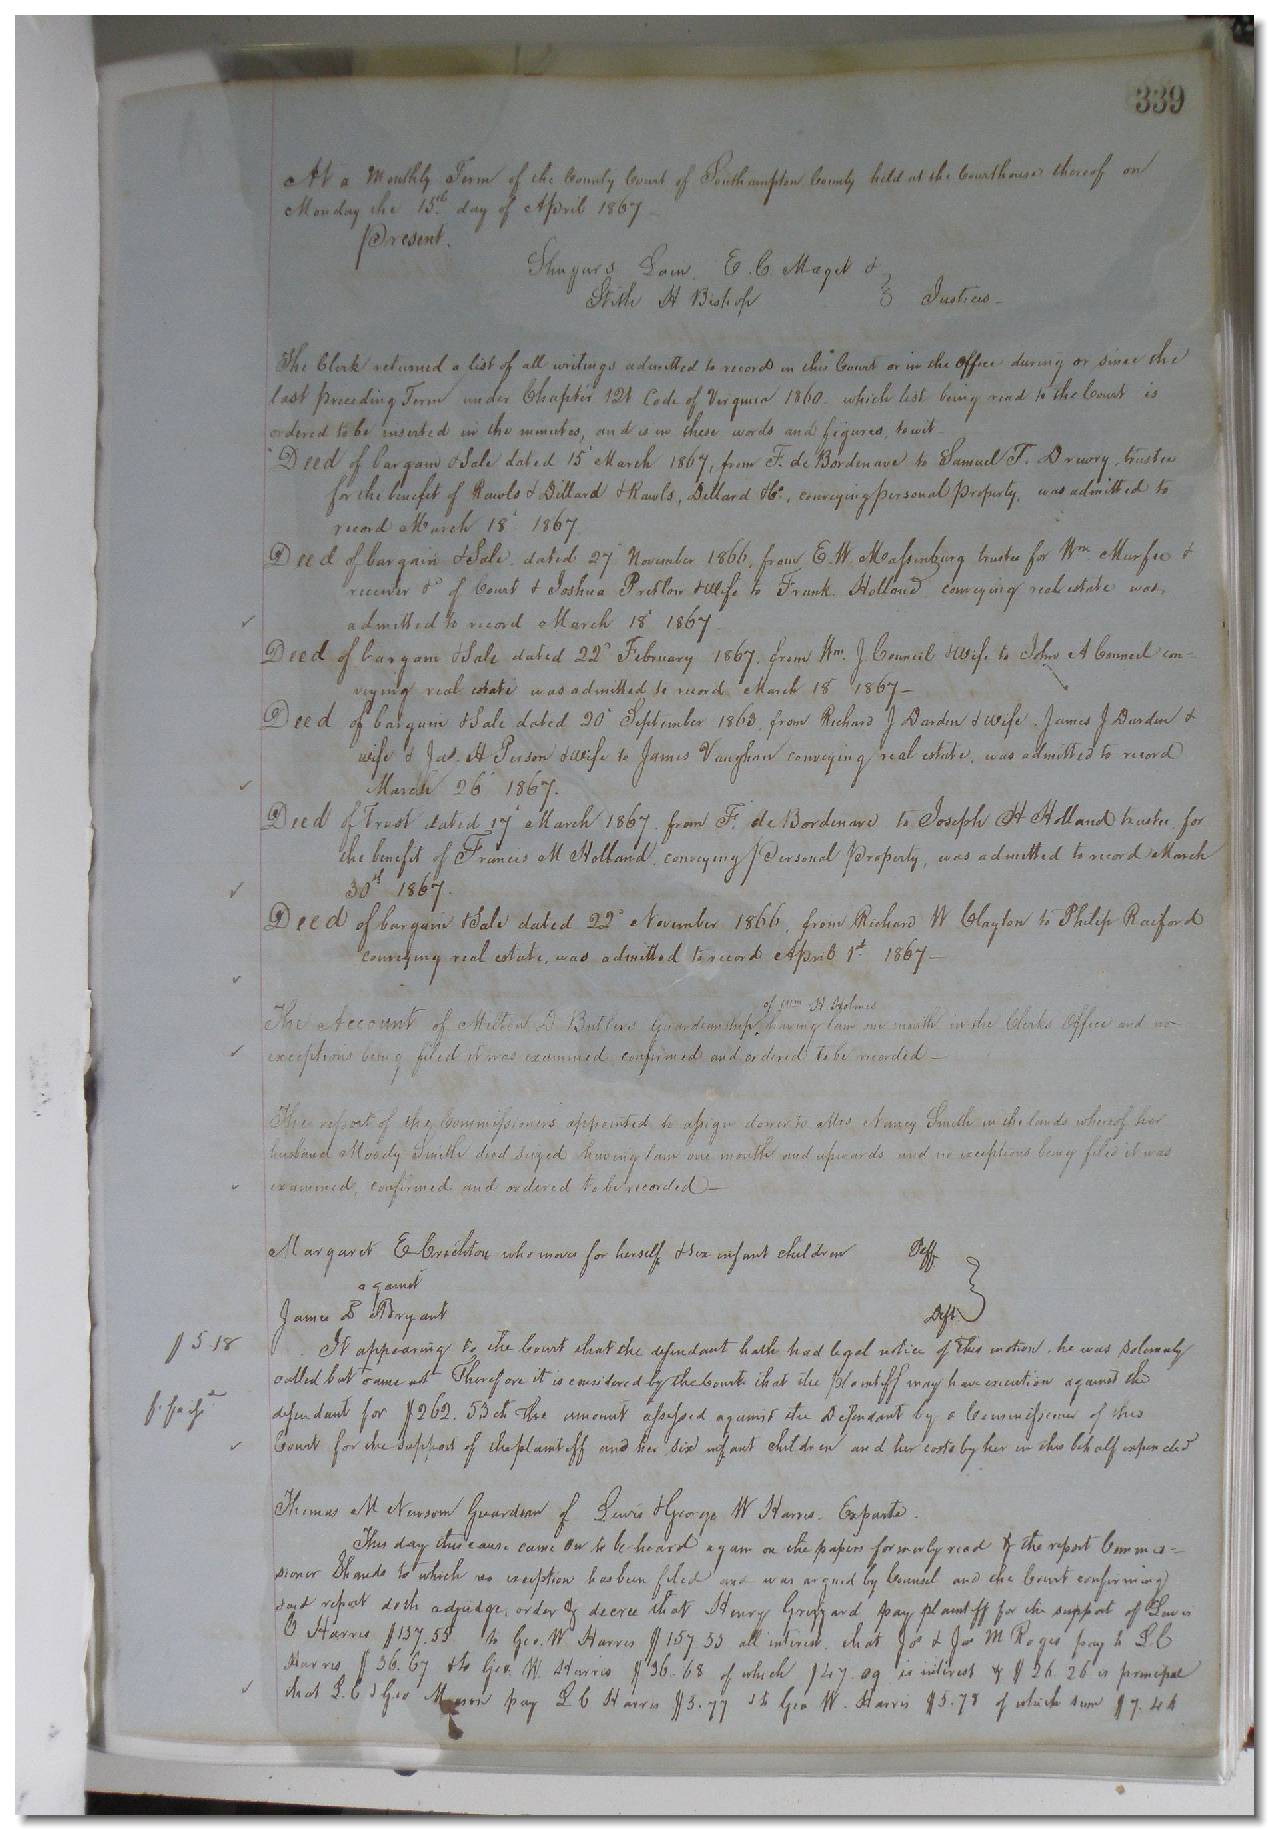 339
At a Monthly Term of the County Court of Southampton County held at the Courthouse thereof on
Monday the 15th day of April 1867
Present.
E. C. Maget &
Stith H Bishop Justices
The Clerk returned a list of all writings admitted to record in this Court or in the Office during or since the
last preceding Term under Chapter 121 Code of Virginia 1860 which list being read to the Court is
ordered to be inserted in the minutes, and is in these words and figures, towit
Deed of bargain & Sale dated 15 March 1867, from F. de Bordenave to Samuel T. Drewry, trustee
for the benefit of Rawls & Dillard & Rawls, Dillard & Co, conveying personal property, was admitted to
record March 18 1867.
Deed of bargain & Sale dated 27 November 1866, from E. W. Massenburg trustee for Wm Murfee &
receiver &c of Court & Joshua Pretlow & Wife to Frank Holland conveying real estate was
admitted to record March 18 1867
Deed of bargain & Sale dated 22 February 1867, from Wm. J Council & Wife to John A Council con-
veying real estate was admitted to record March 18 1867
Deed of bargain & Sale dated 20 September 1863 from Richard J Darden & wife James J Darden &
wife & Jas. H Person & Wife to James Vaughan conveying real estate, was admitted to record
March 26 1867.
Deed of Trust dated 17 March 1867 from F. de Bordenave to Joseph H Holland trustee for
the benefit of Francis M Holland, conveying Personal Property, was admitted to record March
30th 1867.
Deed of bargain & Sale dated 22 November 1866, from Richard W Clayton to Philip Raiford
conveying real estate, was admitted to record April 1st 1867
of Wm H Holmes
The Account of Milton D Butlers Guardianship, having lain one month in the Clerks Office and no
exceptions being filed it was examined, confirmed and ordered to be recorded
The report of the Commissioners appointed to assign dower to Mrs Nancy Smith in the lands whereof her
husband Moody Smith died seized having lain one month and upwards and no exceptions being filed it was
examined, confirmed and ordered to be recorded
Margaret E Crichton who moves for herself & six infant children Plff
against
James D Bryant Deft
$5.18 It appearing to the Court that the defendant hath had legal notice of this motion, he was solemnly
called but came not Therefore it is considered by the Court that the plaintiff may have execution against the
defendant for $262.53 cts the amount assessed against the Defendant by a Commissioner of this
Court for the support of the plaintiff and her six infant children and her costs by her in this behalf expended
Thomas M Newsom Guardian of Lewis & George W Harris. Exparte.
This day this cause came on to be heard again on the papers formerly read & the report Commis-
sioner Shands to which no exception has been filed and was argued by Counsel and the Court confirming
said report doth adjudge, order & decree that Henry Grizzard pay plaintiff for the support of Lewis
C Harris $157.53 to Geo. W Harris $157.53 all interest, that Jos & Jos M Pope pay to L.C
Harris $36.67 & to Geo. W. Harris $36.68 of which $47.09 is interest & $26.26 is principal
that L. C & Geo pay L C Harris $3.77 & to Geo W. Harris $3.78 of which sum $7.44